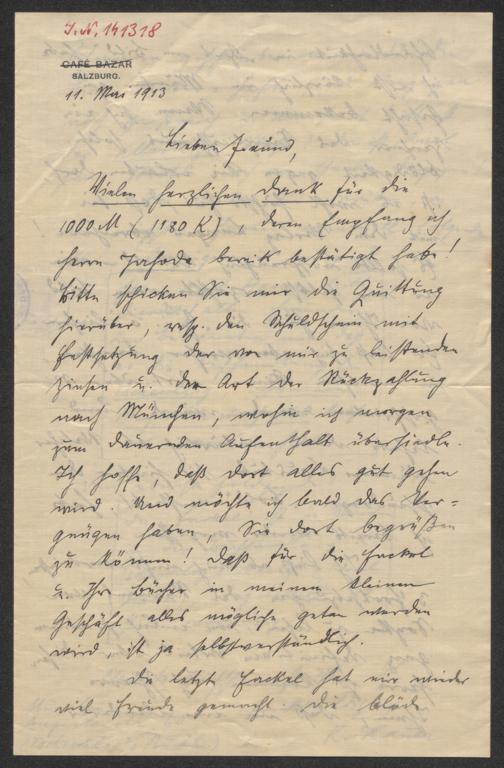 J.N. 141318
CAFÉ BAZAR
SALZBURG.
11. Mai 1913
Lieber Freund,
Vielen herzlichen Dank für die
1000 M (1180 K), deren Empfang ich
Herrn Jahoda bereits bestätigt habe!
Bitte schicken Sie mir die Quittung
hierüber, resp. den Schuldschein mit
Festsetzung der von mir zu leistenden
Zinsen u. der Art der Rückzahlung
nach München, wohin ich morgen
zum dauernden Aufenthalt übersiedle.
Ich hoffe, daß dort alles gut gehen
wird. Und möchte ich bald das Ver=
gnügen haben, Sie dort begrüßen
zu können! Daß für die Fackel
u. Ihre Bücher in meinem kleinen
Geschäft alles mögliche getan werden
wird, ist ja selbstverständlich.
Die letzte Fackel hat mir wieder
viel Freude gemacht. Die blöde